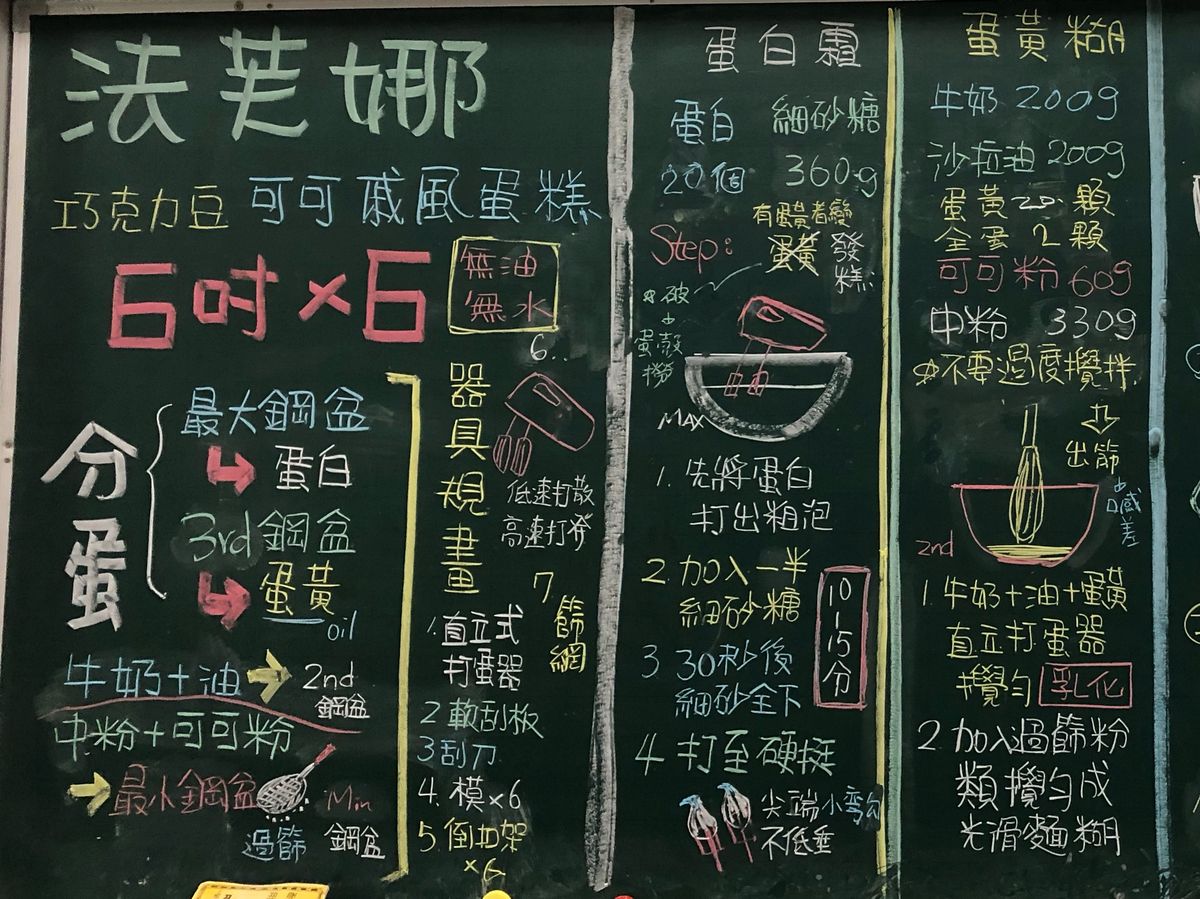 法芙娜
巧克力豆 可可戚風蛋糕
6吋×6
無油
無水
分蛋
最大鋼盆
蛋白
3rd鋼盆
蛋黃
oil
牛奶+油→2nd
鋼盆
中粉+可可粉
→最小鋼盆
過篩
Min
鋼盆
器具規畫
1.直立式
打蛋器
2軟刮板
3刮刀
4.模×6
5.倒扣架
×6
6..
低速打散
高速打發
7
篩網
蛋白霜
蛋白 細砂糖
20個 360g
有蛋黃者變
Step: 蛋黃 發
糕
破
蛋殼
撈
MAX
1.先將蛋白
打出粗泡
2.加入一半
細砂糖
3 30秒後
細砂全下
4 打至硬挺
10-15分
尖端小彎勾
不低垂
蛋黃糊
牛奶 200g
沙拉油 200g
蛋黃20顆
全蛋 2顆
可可粉 60g
中粉 330g
不要過度攪拌
出筋
口感差
2nd
1.牛奶+油+蛋黃
直立打蛋器
攪勻 乳化
2.加入過篩粉
類攪勻成
光滑麵糊